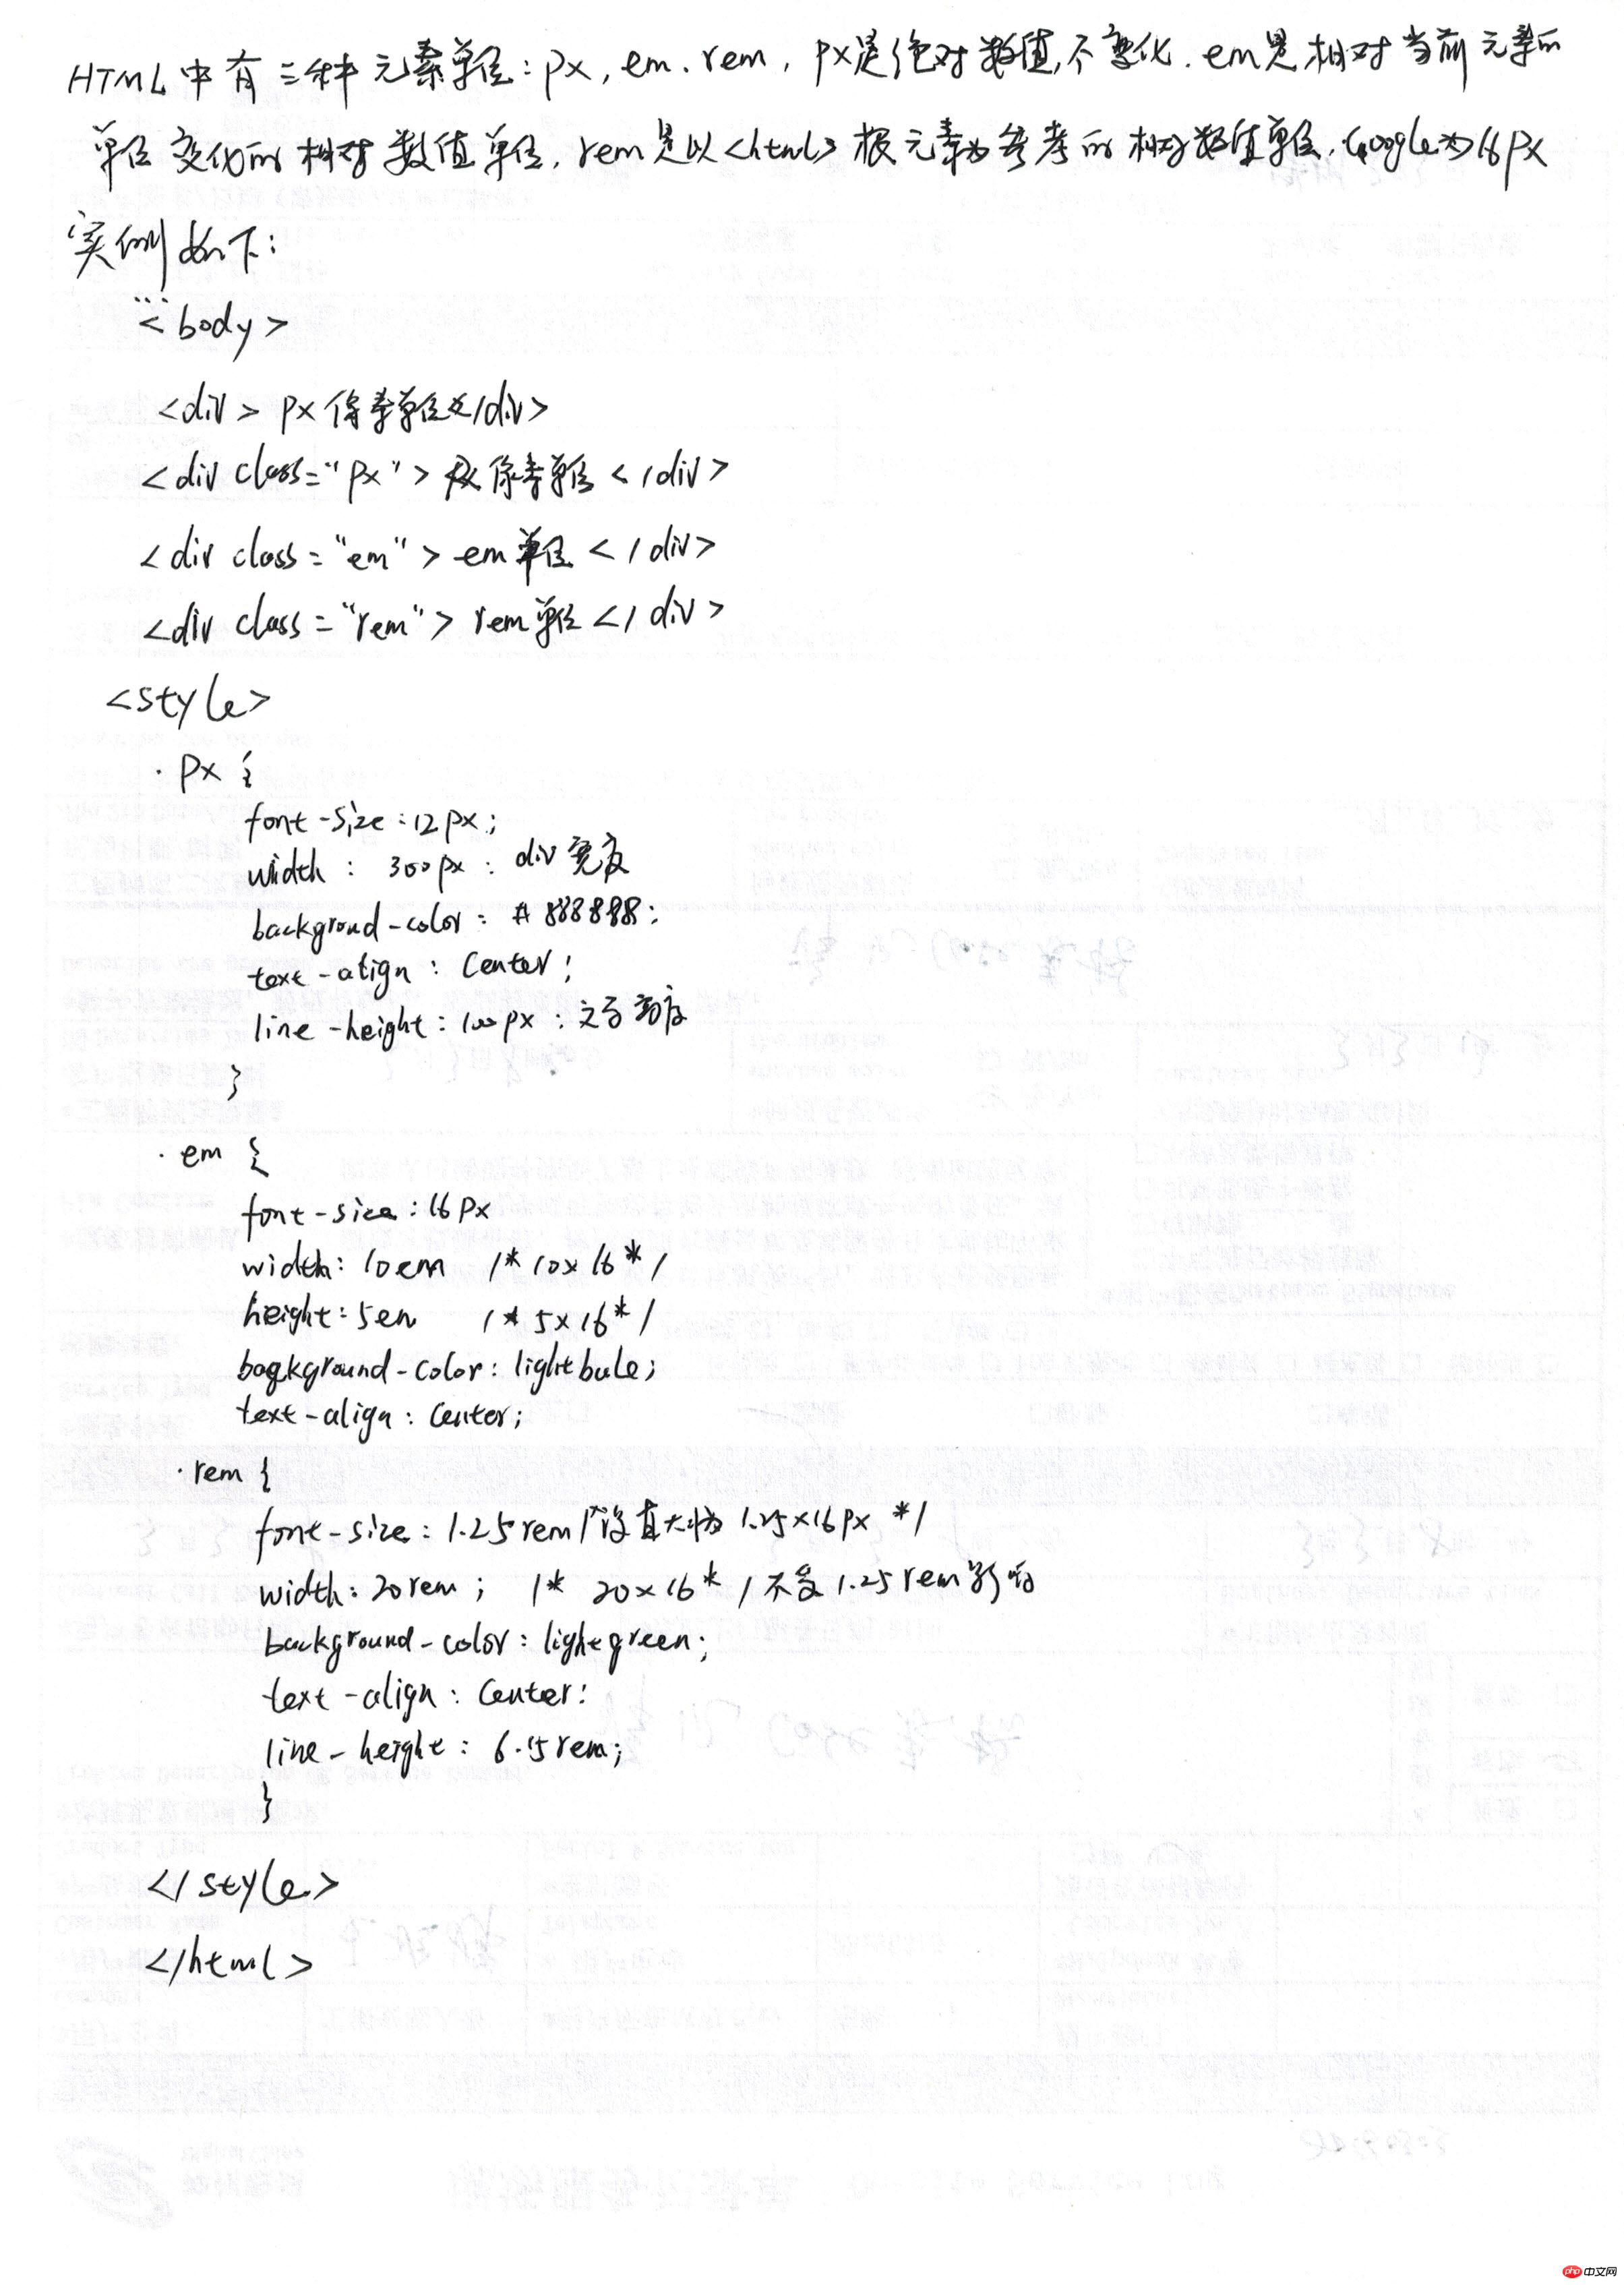 HTML中有三种元素单位:px,em.rem,px是绝对数值,不变化.em是相对当前元素的
单位变化的相对数值单位,rem是以<html>根元素为参考的相对数值单位,Google为16px
实例如下:
...
<body>
<div> px像素单位</div>
<div class="px">px像素单位</div>
<div class="em">em单位</div>
<div class="rem">rem单位</div>
<style>
.px {
font-size:12px;
width: 300px: div宽度
backgroud-color: #888888;
text-align: center;
line-height:100px:文字高度
}
.em {
font-size:16px
width:10em /*10x16*/
height:5em /*5x16*/
background-color:lightbule;
text-align:center;
.rem {
font-size:1.25rem/*设置大小为 1.25x16px */
width:20rem; /* 20x16*/不受1.25rem影响
background-color:lightgreen;
text-align:center:
line-height: rem;
}
</style>
</html>
php中文网